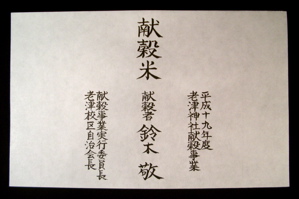 献穀米
平成十九年度
老津神社献穀事業
献穀者 鈴木 敬
献穀事業実行委員長
老津校区自治会長